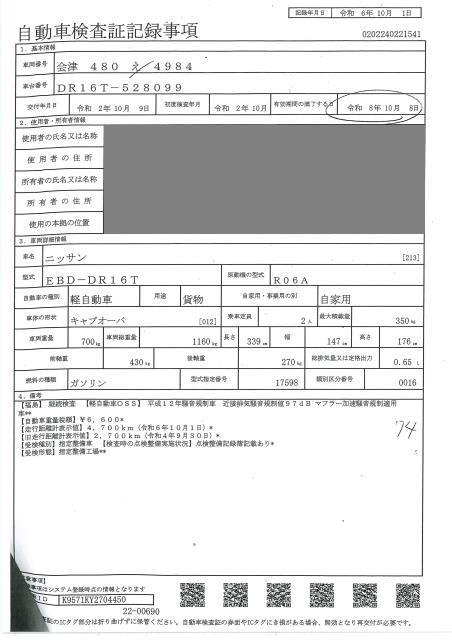 記録年月日 令和 6年10月 1日
自動車検査証記録事項
0202240221541
1. 基本情報
車両番号 会津 480 え 4984
車台番号 DR16T-528099
交付年月日 令和 2年10月 9日 初度検査年月 令和 2年10月 有効期間の満了する日 令和 8年10月 8日
2. 使用者・所有者情報
使用者の氏名又は名称
使用者の住所
所有者の氏名又は名称
所有者の住所
使用の本拠の位置
3. 車両詳細情報
車名 ニッサン [213]
型式 EBD-DR16T 原動機の型式 R06A
自動車の種別 軽自動車 用途 貨物 自家用・事業用の別 自家用
車体の形状 キャブオーバ [012] 乗車定員 2人 最大積載量 350kg
車両重量 700kg 車両総重量 1160kg 長さ 339cm 幅 147cm 高さ 176cm
前軸重 430kg 後軸重 270kg 総排気量又は定格出力 0.65 L
燃料の種類 ガソリン 型式指定番号 17598 類別区分番号 0016
4. 備考
【福島】 継続検査 【軽自動車OSS】 平成12年騒音規制車 近接排気騒音規制値97dB マフラー加速騒音規制適用
車**
【自動車重量税額】¥6,600*
【走行距離計表示値】4,700km(令和6年10月1日)*
【旧走行距離計表示値】2,700km(令和4年9月30日)*
【受検種別】指定整備車 【検査時の点検整備実施状況】点検整備記録簿記載あり*
【受検形態】指定整備工場**
74
事項】
事項はシステム登録時点の情報となります
ID K9571KY2704450
22-00690
証のICタグ部分は折り曲げずに保管ください。自動車検査証の券面やICタグにき損がある場合、罰則となり再交付が必要です。